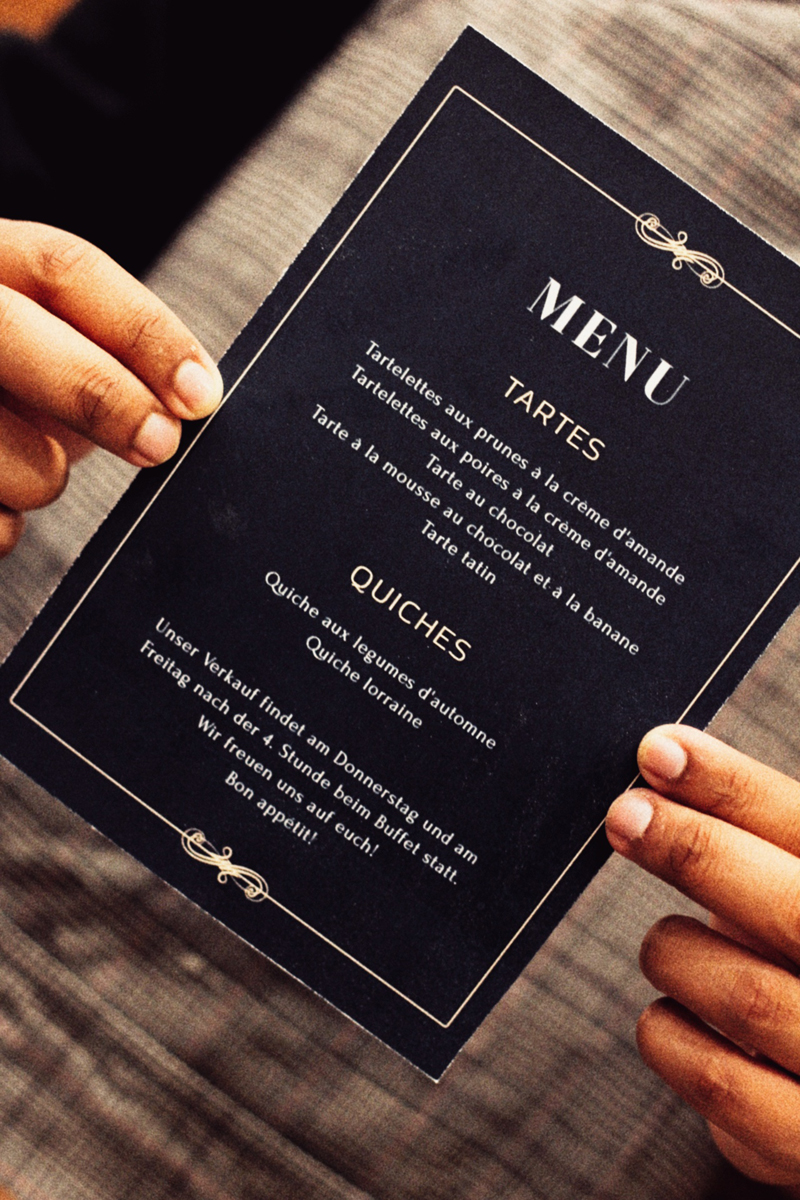 MENU
TARTES
Tartelettes aux prunes à la crème d'amande
Tartelettes aux poires à la crème d'amande
Tarte au chocolat
Tarte à la mousse au chocolat et à la banane
Tarte tatin
QUICHES
Quiche aux legumes d'automne
Quiche lorraine
Unser Verkauf findet am Donnerstag und am
Freitag nach der 4. Stunde beim Buffet statt.
Wir freuen uns auf euch!
Bon appétit!